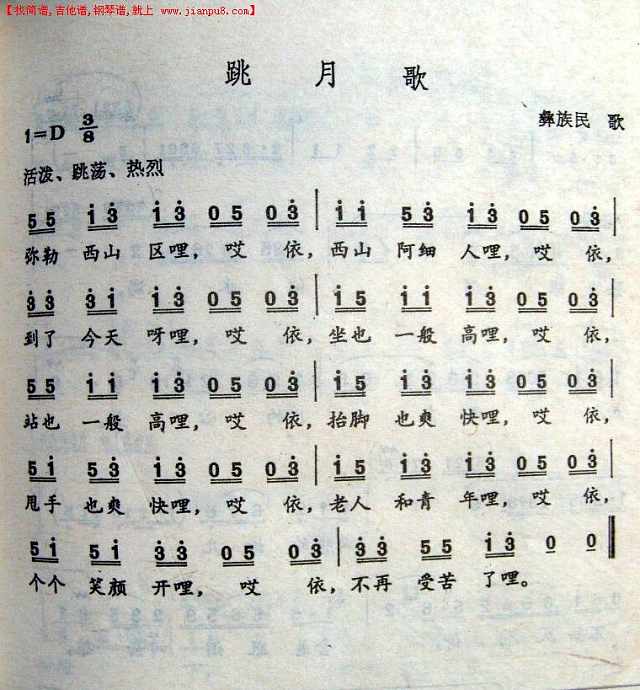 【找简谱,吉他谱,钢琴谱,就上 www.jianpu8.com】
跳 月 歌
1=D 3/8 彝族民 歌
活泼、跳荡、热烈
5 5 i 3̇ i 3̇ 0 5 0 3̇ | i i 5 3̇ i 3̇ 0 5 0 3̇ |
弥勒 西山 区哩，哎 依，西山 阿细 人哩，哎 依，
3̇ 3̇ 3̇ i i 3̇ 0 5 0 3̇ | i 5 i i i 3̇ 0 5 0 3̇ |
到了 今天 呀哩，哎 依，坐也 一般 高哩，哎 依，
5 5 i i i 3̇ 0 5 0 3̇ | i 5 5 3̇ i 3̇ 0 5 0 3̇ |
站也 一般 高哩，哎 依，抬脚 也爽 快哩，哎 依，
5 i 5 3̇ i 3̇ 0 5 0 3̇ | 3̇ i 5 i i 3̇ 0 5 0 3̇ |
甩手 也爽 快哩，哎 依，老人 和青 年哩，哎 依，
5 i 5 i 3̇ 3̇ 0 5 0 3̇ | 3̇ 3̇ 5 5 i 3̇ 0 0 ‖
个个 笑颜 开哩，哎 依，不再 受苦 了哩。